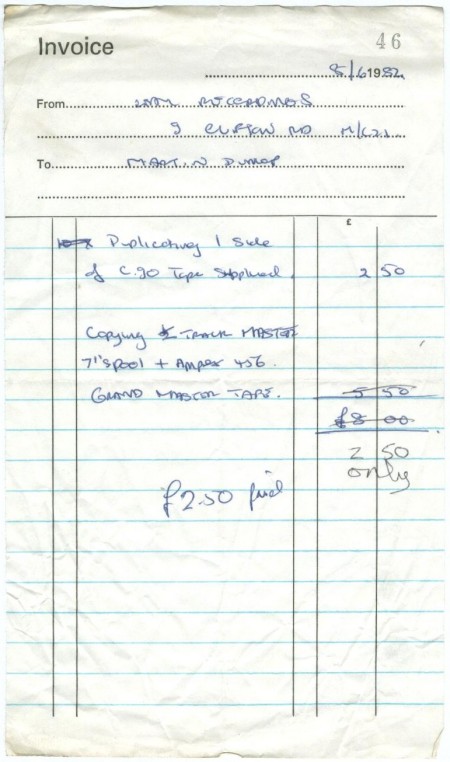 Invoice
46
8/6 1982
From
9 CLIFTON RD M/C21
To MARTIN
£
Duplicating 1 Side
of C.90 Tape Supplied. 2 50
Copying ½ TRACK MASTER
7" SPOOL + Ampex 456.
GRAND MASTER TAPE. 5 50
£8 00
2 50
only
£2.50 paid